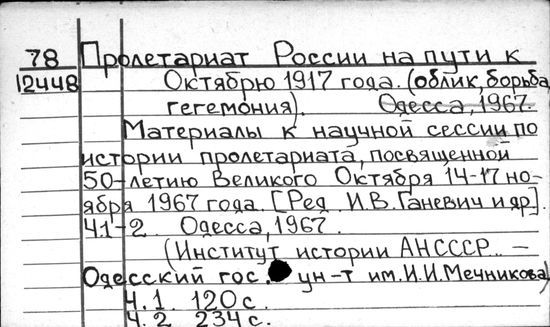 78 Пролетариат России на пути к
12448 Октябрю 1917 года. (облик, борьба,
гегемония). Одесса, 1967.
Материалы к научной сессии по
истории пролетариата, посвященной
50-летию Великого Октября 14-17 но-
ября 1967 года. [Ред. И.В. Ганевич и др].
Ч.1-2. Одесса, 1967.
(Институт истории АНСССР. –
Одесский гос. ун-т им. И.И. Мечникова)
Ч.1. 120 с.
Ч.2. 234 с.